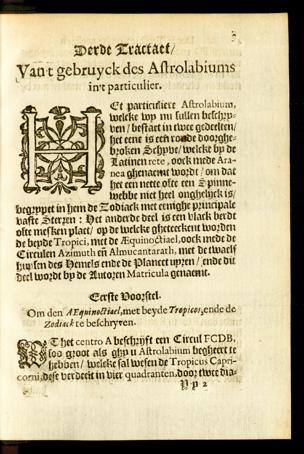 Derde Tractaet/
Van't gebruyck des Astrolabiums
in't particulier.
HEt particuliere Astrolabium,
welcke wy nu sullen beschry-
ven/ bestaet in twee gedeelten/
het eene is een ronde doorghe-
broken Schyve/ welcke by de
Latinen rete, oock mede Ara-
nea ghenaemt wordt/ om dat
het een nette ofte een Spinne-
webbe niet heel onghelijck is/
begrypet in hem de Zodiack met eenighe principale
vaste Sterren: Het anderde deel is een vlack berdt
ofte mesken plaet/ op de welcke gheteeckent worden
de beyde Tropici, met de Æquinoctiael, oock mede de
Circulen Azimuth en Almucantarath, met de twaelf
huysen des Hemels ende de Planeet uyren/ ende dit
deel wordt by de Autoren Matricula genaemt.
Eerste Voorstel.
Om den AEquinoctiael, met beyde Tropicos, ende de
Zodiack te beschryven.
WT het centro A beschryft een Circul FCDB,
soo groot als ghy u Astrolabium begheert te
hebben/ welcke sal wesen de Tropicus Capri-
corni, dese verdeelt in vier quadranten, door twee dia-
Pp 2